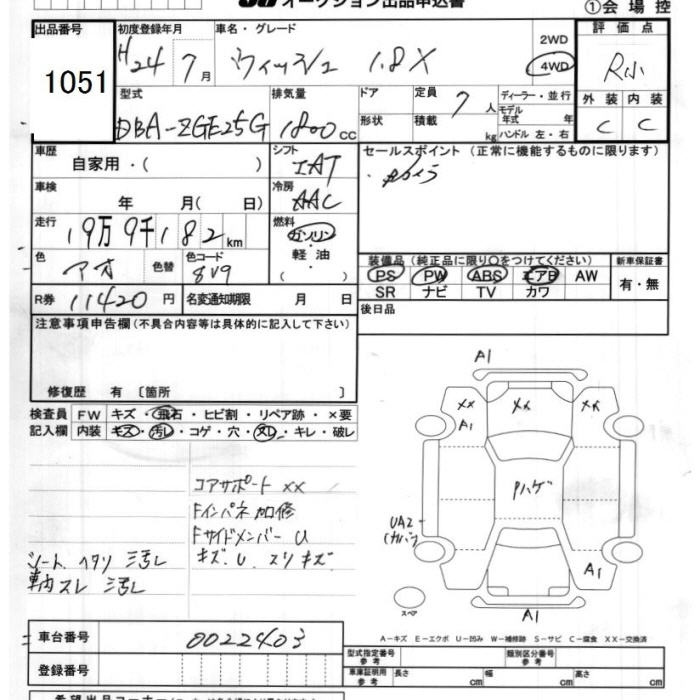 オークション出品申込書
①会場控
出品番号
1051
初度登録年月
H24 7月
車名・グレード
ウィッシュ 1.8X
2WD
4WD
評価点
R小
外装 内装
C C
型式
DBA-ZGE25G
排気量
1800 cc
ドア
形状
定員 7人
積載 kg
ディーラー・並行
モデル年式 年式
ハンドル 左・右
車歴
自家用・( )
シフト
IAT
セールスポイント (正常に機能するものに限ります)
車検
年 月( 日)
冷房
AAC
走行
19万9千182km
燃料
ガソリン
軽油
( )
色
アオ
色替
色コード
8V9
装備品 (純正品に限り○をつけてください)
PS PW ABS エアB AW
SR ナビ TV カワ
新車保証書
有・無
R券 11420円
名変通知期限 月 日
後日品
注意事項申告欄 (不具合内容等は具体的に記入して下さい)
修復歴 有 [箇所 ]
検査員記入欄
FW キズ・飛石・ヒビ割・リペア跡・×要
内装 キズ・汚レ・コゲ・穴・スレ・キレ・破レ
コアサポート ××
Fインパネ 加修
Fサイドメンバー U
キズ. U. スリキズ
シート ヘタリ 汚レ
車内 スレ 汚レ
A1
XX
XX
XX
A1
Pハゲ
UA2
(カバー)
A1
スペア
A1
A-キズ E-エクボ U-凹み W-補修跡 S-サビ C-腐食 XX-交換済
車台番号 0022403
登録番号
型式指定番号 参考
類別区分番号 参考
車庫証明用 参考
長さ cm
幅 cm
高さ cm